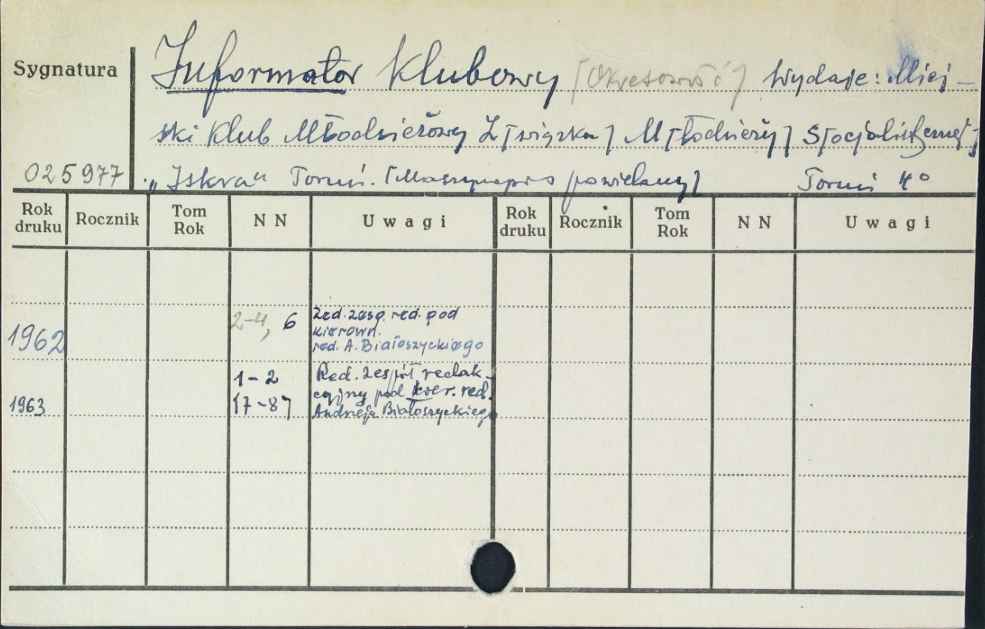 Sygnatura
Informator Klubowy [Okresowość] Wydaje: Miej-
ski Klub Młodzieżowy Z[wiązku] M[łodzieży] S[ocjalistycznej]
025977 "Iskra" Toruń. [Maszynopis powielany] Toruń 4°
Rok druku Rocznik Tom Rok N N Uwagi Rok druku Rocznik Tom Rok N N Uwagi
1962 2-4, 6 Red. zesp. red. pod
kierown.
red. A. Białoszyckiego
1963 1-2 Red. Zespół redak
[7-8] cyjny pod kier. red.
Andrzeja Białoszyckiego